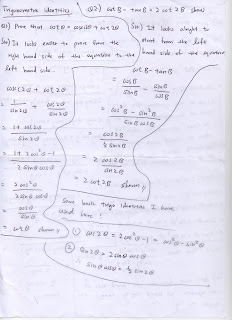 Trigonometric Identities
Q1) Prove that cot θ = cosec 2θ + cot 2θ
Sol) It looks easier to prove from the
right hand side of the equation to the
left hand side.
cosec 2θ + cot 2θ
= 1/sin2θ + cos2θ/sin2θ
= (1 + cos2θ)/sin2θ
= (1 + 2cos²θ - 1)/(2 sinθ cosθ)
= 2cos²θ/(2sinθ cosθ)
= cosθ/sinθ
= cot θ shown //
Q2) cot B - tan B = 2 cot 2B show
Sol) It looks alright to
start from the left
hand side of the equation
cot B - tan B
= cosB/sinB - sinB/cosB
= (cos²B - sin²B)/(sinB cosB)
= cos2B/(½ sin2B)
= 2 cos2B/sin2B
= 2 cot 2B shown //
Some basic trigo identities I have
used here!
① cos2θ = 2cos²θ - 1 = cos²θ - sin²θ
② sin2θ = 2 sinθ cosθ
∴ sinθ cosθ = ½ sin2θ